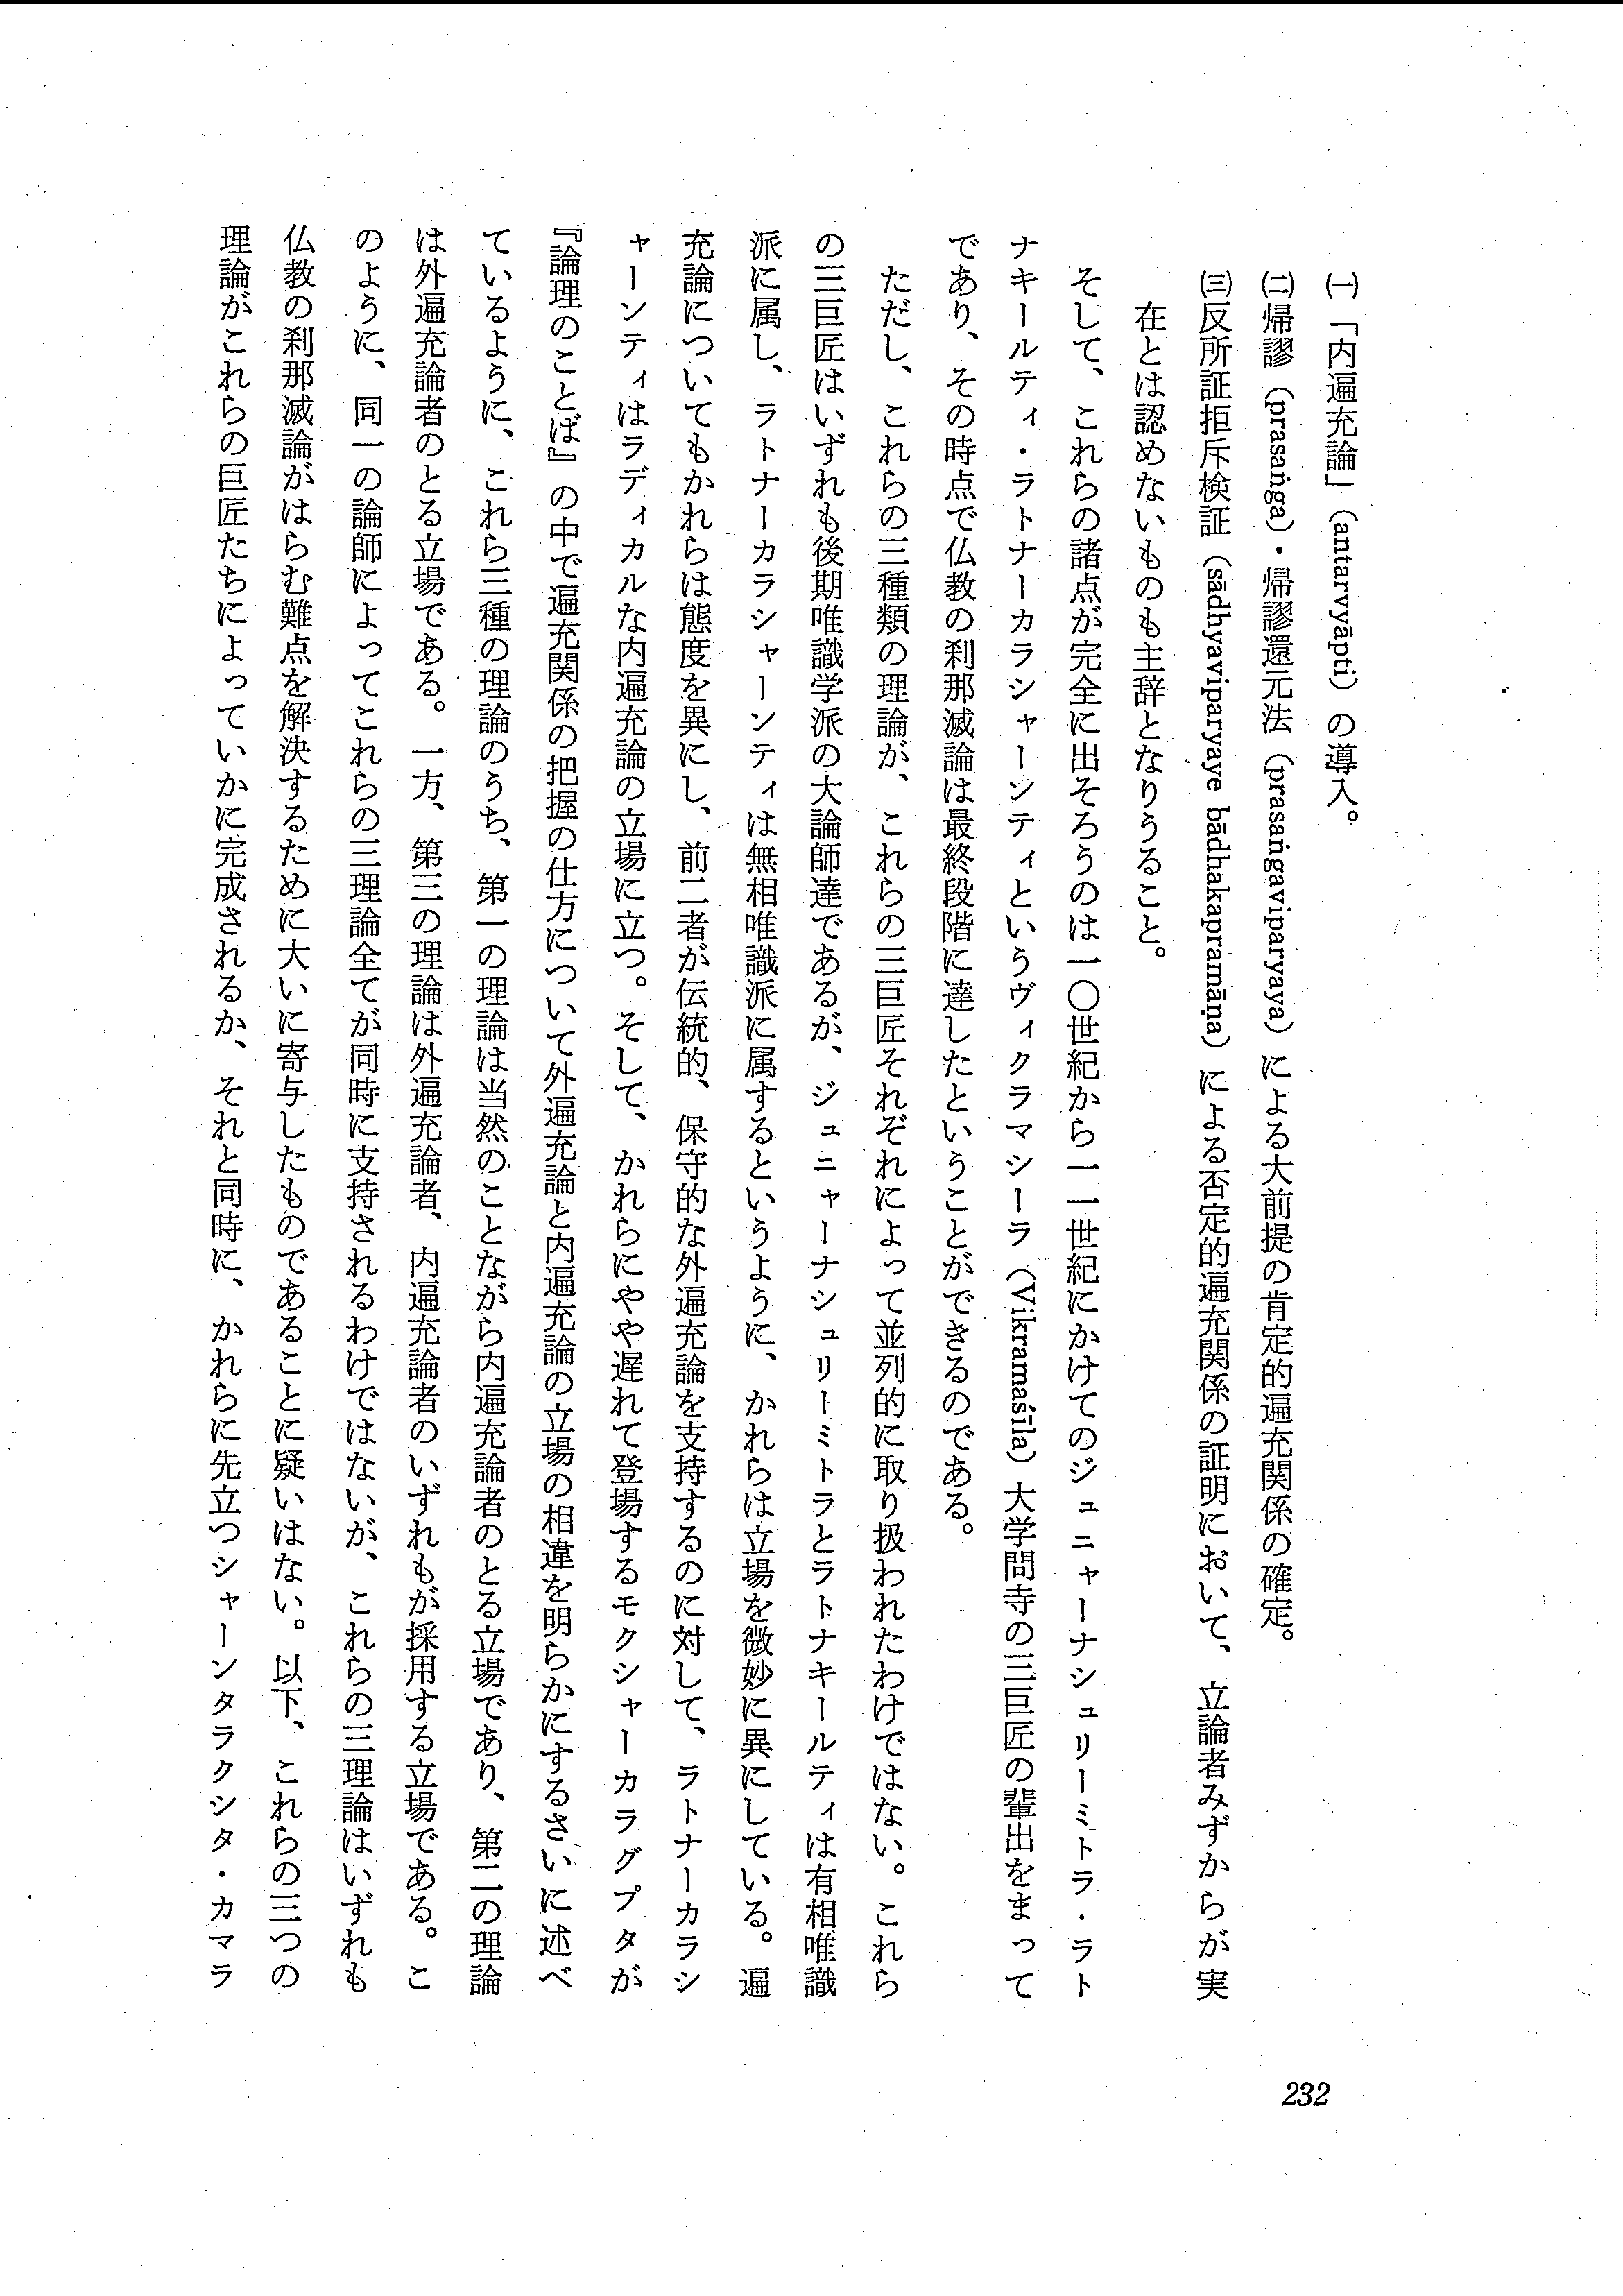 ㈠「内遍充論」（antarvyāpti）の導入。
㈡帰謬（prasaṅga）・帰謬還元法（prasaṅgaviparyaya）による大前提の肯定的遍充関係の確定。
㈢反所証拒斥検証（sādhyaviparyaye bādhakapramāṇa）による否定的遍充関係の証明において、立論者みずからが実
在とは認めないものも主辞となりうること。
そして、これらの諸点が完全に出そろうのは一〇世紀から一一世紀にかけてのジュニャーナシュリーミトラ・ラト
ナキールティ・ラトナーカラシャーンティというヴィクラマシーラ（Vikramaśīla）大学問寺の三巨匠の輩出をまって
であり、その時点で仏教の刹那滅論は最終段階に達したということができるのである。
ただし、これらの三種類の理論が、これらの三巨匠それぞれによって並列的に取り扱われたわけではない。これら
の三巨匠はいずれも後期唯識学派の大論師達であるが、ジュニャーナシュリーミトラとラトナキールティは有相唯識
派に属し、ラトナーカラシャーンティは無相唯識派に属するというように、かれらは立場を微妙に異にしている。遍
充論についてもかれらは態度を異にし、前二者が伝統的、保守的な外遍充論を支持するのに対して、ラトナーカラシ
ャーンティはラディカルな内遍充論の立場に立つ。そして、かれらにやや遅れて登場するモクシャーカラグプタが
『論理のことば』の中で遍充関係の把握の仕方について外遍充論と内遍充論の立場の相違を明らかにするさいに述べ
ているように、これら三種の理論のうち、第一の理論は当然のことながら内遍充論者のとる立場であり、第二の理論
は外遍充論者のとる立場である。一方、第三の理論は外遍充論者、内遍充論者のいずれもが採用する立場である。こ
のように、同一の論師によってこれらの三理論全てが同時に支持されるわけではないが、これらの三理論はいずれも
仏教の刹那滅論がはらむ難点を解決するために大いに寄与したものであることに疑いはない。以下、これらの三つの
理論がこれらの巨匠たちによっていかに完成されるか、それと同時に、かれらに先立つシャーンタラクシタ・カマラ
232